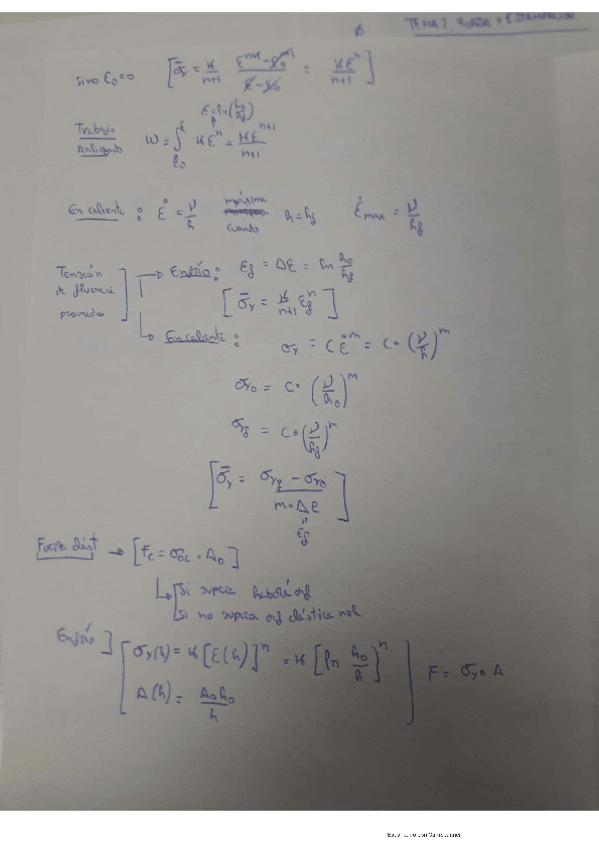 TEMA 2. FORJA Y ESTAMPACIÓN
si no ε₀=0 [σ̄y = K/(n+1) (ε^(n+1) - ε₀^(n+1))/(ε - ε₀) = Kε^n/(n+1)]
ε = ln(h₀/hf)
Trabajo realizado W = ∫_{ε₀}^{ε} Kε^n = Kε^(n+1)/(n+1)
En caliente : ε̇ = v/h máxima cuando h = hf ε̇max = v/hf
Tensión de fluencia promedio]
→ En frío : εf = Δε = ln h₀/hf
[σ̄y = K/(n+1) εf^n]
→ En caliente : σy = C ε̇^m = C·(v/h)^m
σy₀ = C·(v/h₀)^m
σyf = C·(v/hf)^m
[σ̄y = (σyf - σy₀)/(m·Δε)]
εf
Fuerza elást → [Fc = σoc · A₀]
Si supera habrá
Si no supera elástica
En frío] [σy(h) = K[ε(h)]^n = K[ln h₀/h]^n
A(h) = A₀h₀/h] F = σy · A